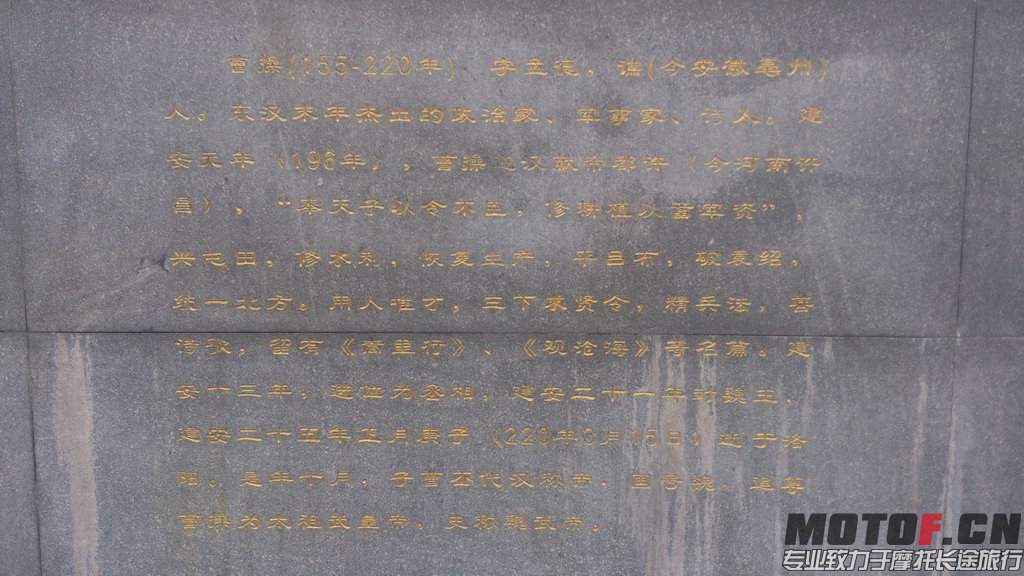 曹操(155-220年)　字孟德，谯(今安徽亳州)
人。东汉末年杰出的政治家、军事家、诗人。建
安元年（196年），曹操迎汉献帝都许（今河南许
昌），“奉天子以令不臣，修耕植以蓄军资”，
兴屯田，修水利，恢复生产，平吕布，破袁绍，
统一北方。用人唯才，三下求贤令，精兵法，善
诗歌，留有《蒿里行》、《观沧海》等名篇。建
安十三年，进位为丞相，建安二十一年封魏王，
建安二十五年正月庚子（220年3月15日）逝于洛
阳。是年十月，子曹丕代汉称帝，国号魏，追尊
曹操为太祖武皇帝，史称魏武帝。
MOTOF.CN
专业致力于摩托长途旅行